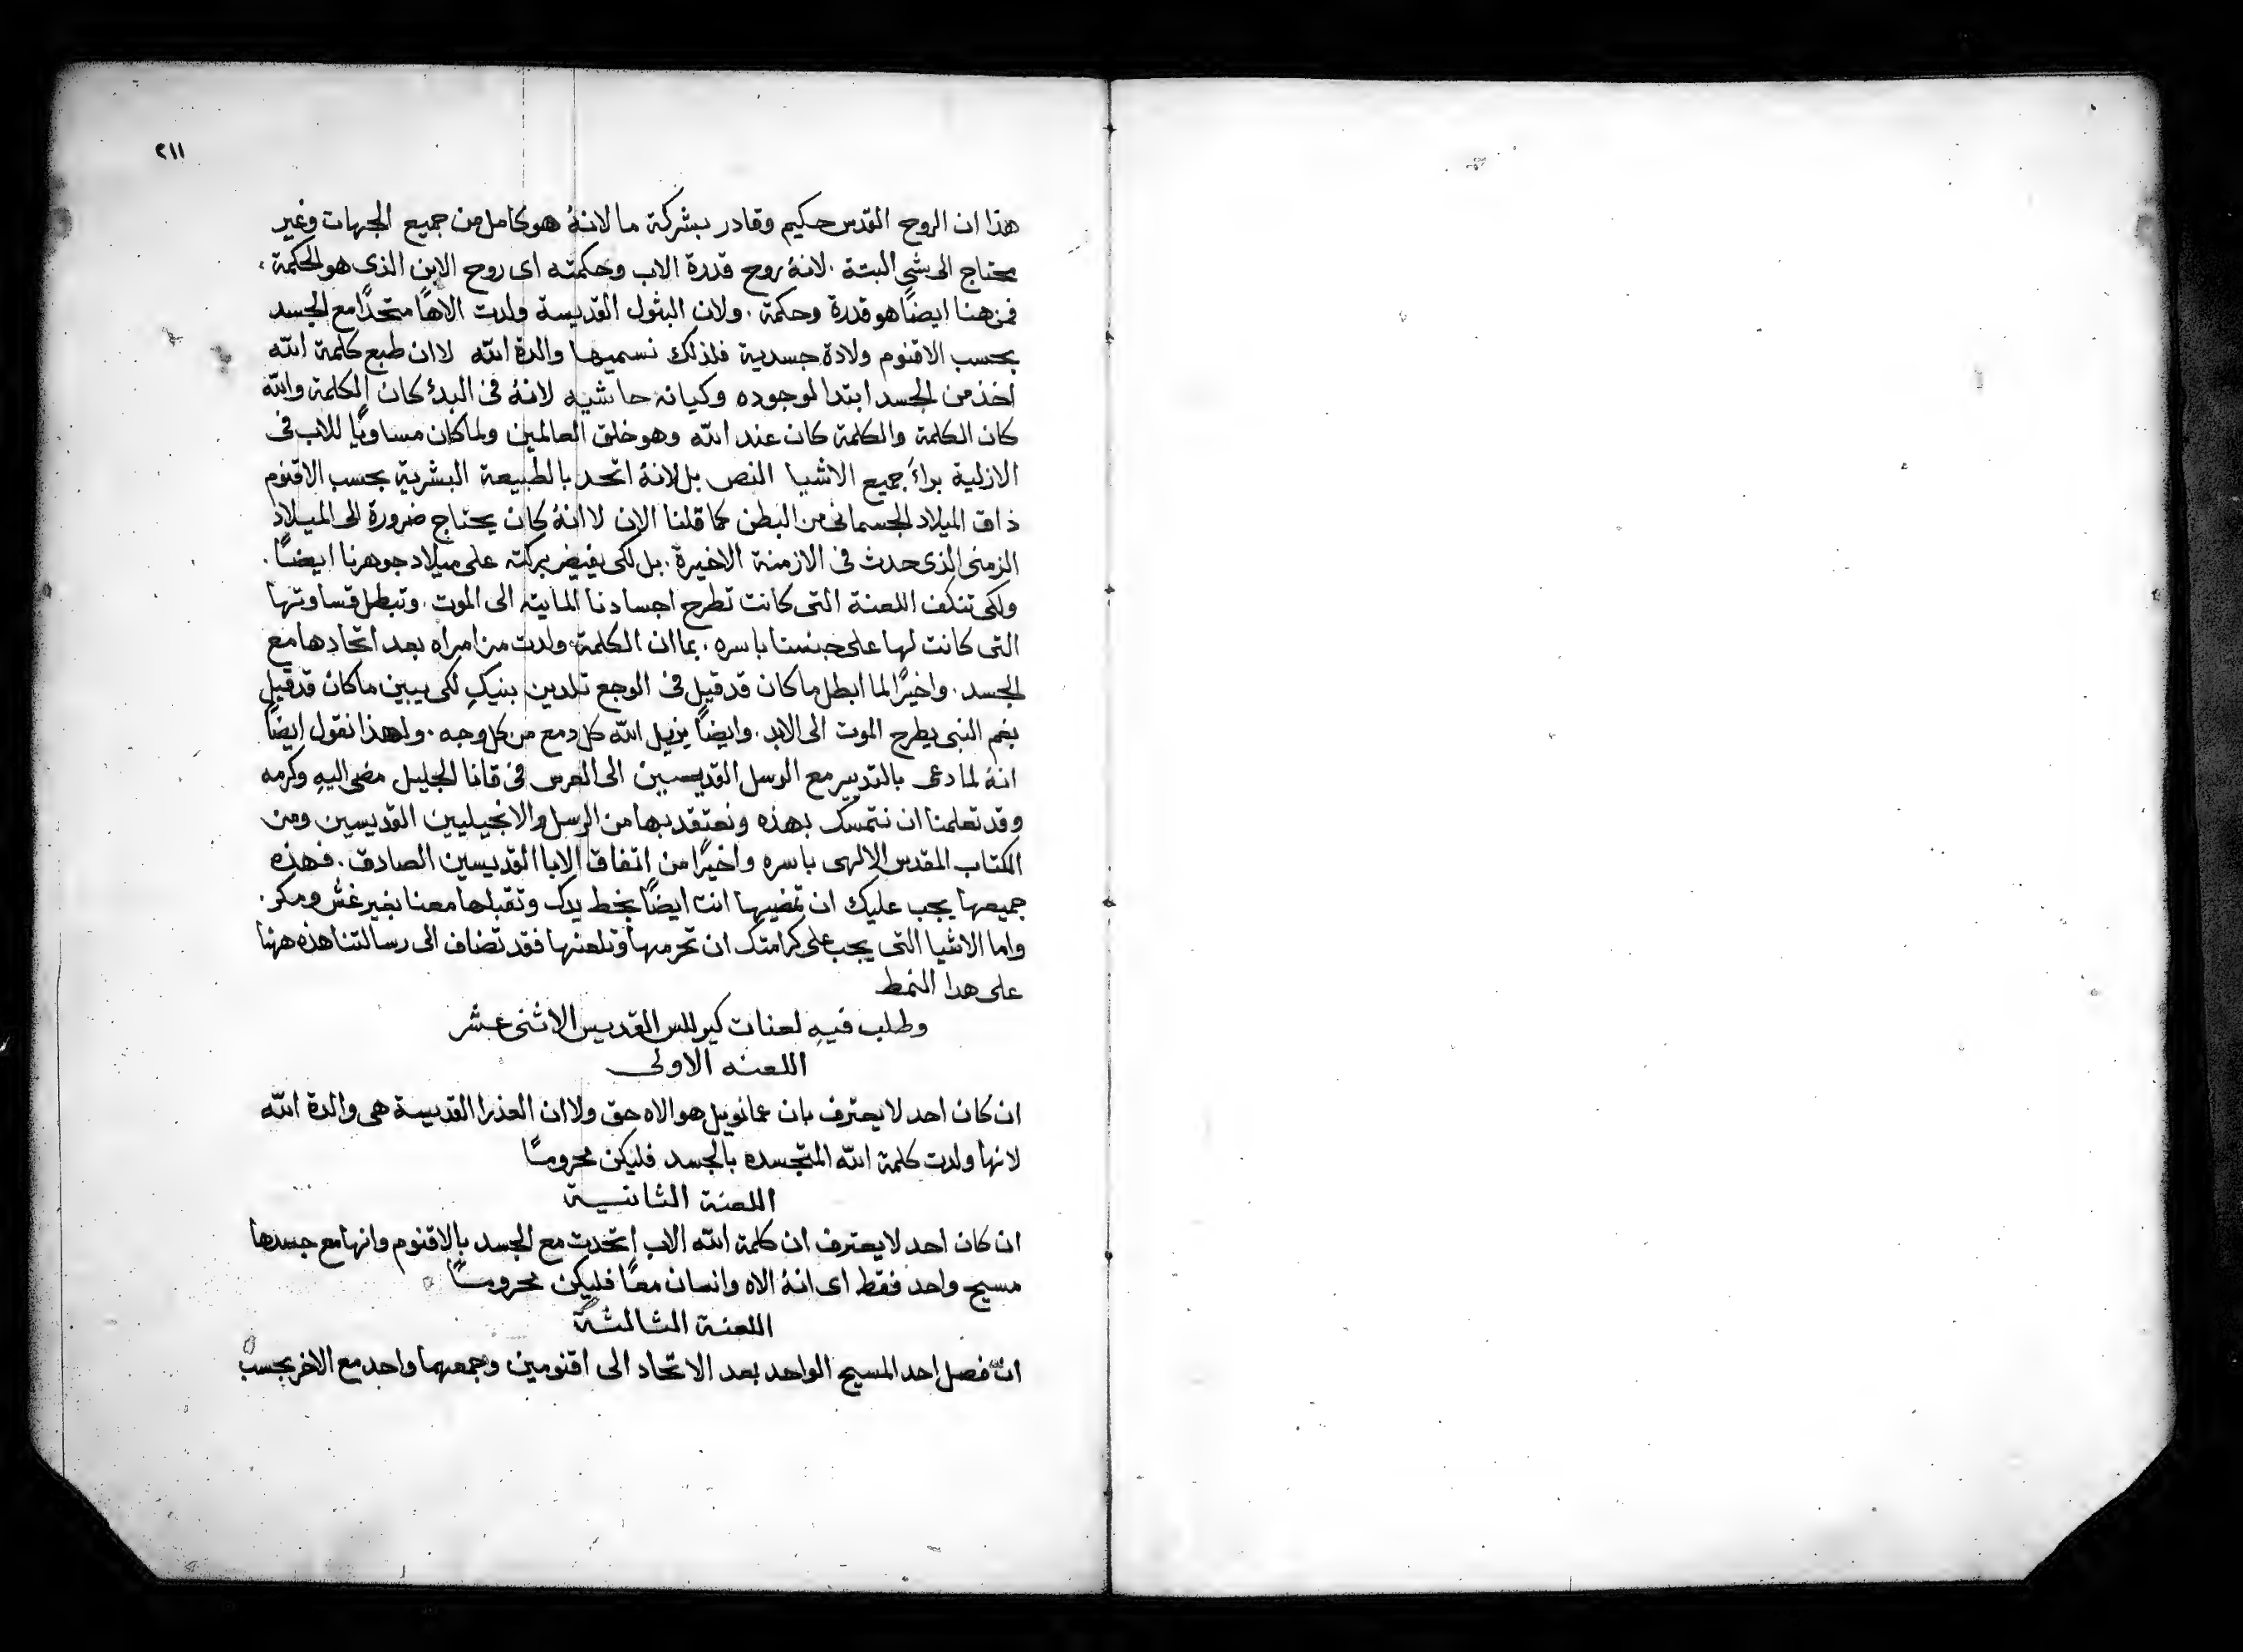 ٢١١
هذا ان الروح القدس حكيم وقادر بشركة ما لانهُ هو كامل من جميع الجهات وغير
محتاج الى شي البتة . لانهُ روح قدرة الاب وحكمته اى روح الابن الذى هو الحكمة .
فمن هنا ايضًا هو قدرة وحكمة . ولان البتول القديسة ولدت الاهًا متحدًا مع الجسد
بحسب الاقنوم ولادة جسدية فلذلك نسميها والدة الله لا ان طبع كلمة الله
اخذ من الجسد ابتدا لوجوده وكيانه حاشيه لانهُ فى البدء كان الكلمة والله
كان الكلمة والكلمة كان عند الله وهو خلق العالمين ولما كان مساويًا للاب فى
الازلية براَ جميع الاشيا النص بل لانهُ اتحد بالطبيعة البشرية بحسب الاقنوم
ذاق الميلاد الجسمانى من البطن كما قلنا الان لا انهُ كان يحتاج ضرورة الى الميلاد
الزمنى الذى حدث فى الازمنة الاخيرة . بل لكى يفيض بركته على ميلاد جوهرنا ايضًا .
ولكى تنكف اللعنة التى كانت تطرح اجسادنا المايته الى الموت . وتبطل قساوتها
التى كانت لها على جنسنا باسره . بما ان الكلمة ولدت من امراه بعد اتحادها مع
الجسد . واخيرًا لما ابطل ما كان قد قيل فى الوجع تلدين بنيكِ لكى يبين ما كان قد قيل
بفم النبى يطرح الموت الى الابد . وايضًا يزيل الله كل دمع من كل وجه . ولهذا نقول ايضًا
انهُ لما دعى بالتدبير مع الرسل القديسين الى العرس فى قانا الجليل مضى اليهِ وكرمه
وقد تعلمنا ان نتمسك بهذه ونعتقد بها من الرسل والانجيليين القديسين ومن
الكتاب المقدس الالهى باسره واخيرًا من اتفاق الابا القديسين الصادق . فهذه
جميعها يجب عليك ان تمضيها انت ايضًا بخط يدك وتقبلها معنا بغير غش ومكر .
واما الاشيا التى يجب على كرامتك ان تحرمها وتلعنها فقد تضاف الى رسالتنا هذه ههنا
على هدا النمط
وطلب فيهِ لعنات كيرللس القديس الاثنى عشر
اللعنه الاولى
ان كان احد لا يعترف بان عمانويل هو الاه حق ولا ان العذرا القديسة هى والدة الله
لانها ولدت كلمة الله المتجسده بالجسد فليكن محرومًا
اللعنة الثانية
ان كان احد لا يعترف ان كلمة الله الاب اتحدت مع الجسد بالاقنوم وانها مع جسدها
مسيح واحد فقط اى انهُ الاه وانسان معًا فليكن محرومًا
اللعنة الثالثة
ان فصل احد المسيح الواحد بعد الاتحاد الى اقنومين وجمعهما واحد مع الاخر بحسب